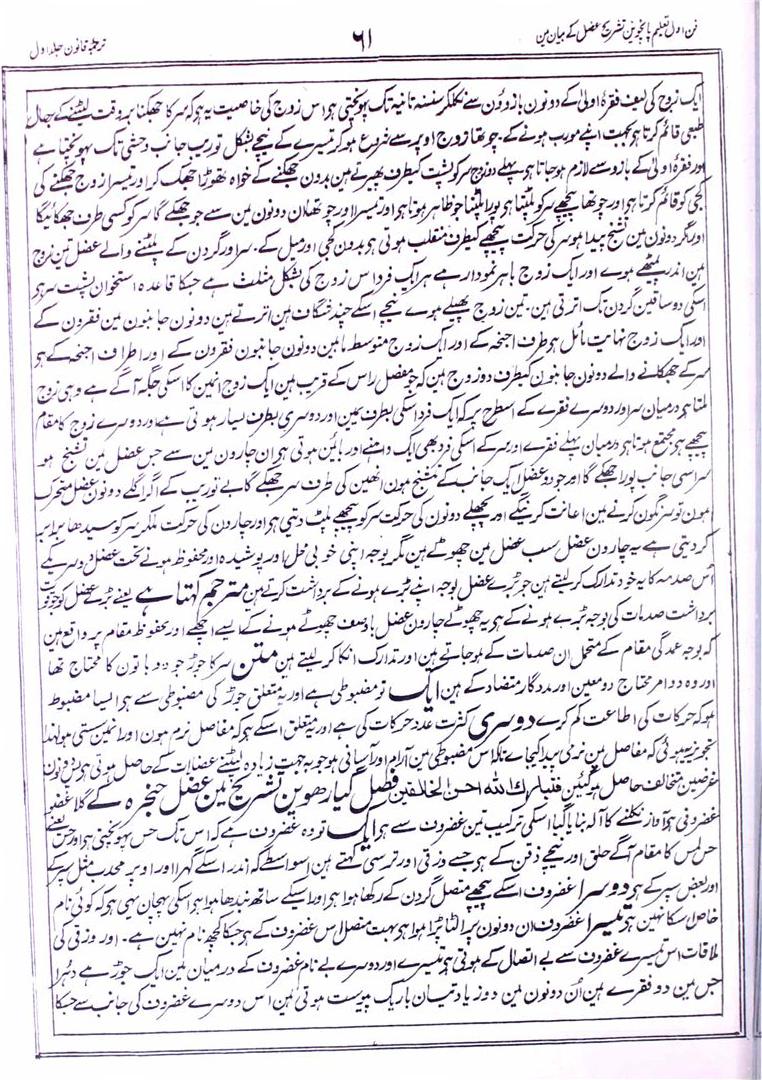 فن اول تعلیم پانچوین تشریح عضل کے بیان مین
۶۱
ترجمہ قانون جلد اول
ایک زوج کی لیف فقرۂ اولیٰ کے دونون بازوؤن سے نکلکر سنسنہ ثانیہ تک پہونچتی ہو اس زوج کی خاصیت یہ ہو کہ سر کا جھکنا بر وقت لپٹنے کے حال
طبعی قائم کرتا ہو بجہت اپنے مورب ہونے کے۔ چوتھا زوج اوپر سے شروع ہو کر تیسرے کے نیچے بشکل توریب جانب وحشی تک پہونچتا ہے
اور فقرۂ اولیٰ کے بازو سے لازم ہو جاتا ہو پہلے دو زوج سر کو پشت کیطرف پھیرتے ہین بدون جھکنے کے خواہ تھوڑا جھک کر اور تیسرا زوج جھکنے کی
کجی کو قائم کرتا ہو اور چوتھا پیچھے سر کو پلٹتا ہو پورا پلٹنا جو ظاہر ہوتا ہو اور تیسرا اور چوتھا ان دونون مین سے جو جھکے گا سر کو کسی طرف جھکائیگا
اور اگر دونون مین تشنج پیدا ہو سر کی حرکت پیچھے کیطرف منقلب ہوتی ہو بدون کجی اور میل کے۔ سر اور گردن کے پلٹنے والے عضل تین زوج
ہین اندر بیٹھے ہوے اور ایک زوج باہر نمودار ہے ہر ایک فرد اس زوج کی بشکل مثلث ہے جسکا قاعدہ استخوان پشت سر ہو
اسکی دو ساقین گردن تک اترتی ہین۔ تین زوج پھیلے ہوے نیچے اسکے چند شگاف ہین اترتے ہین دونون جانبون مین فقرون کے
اور ایک زوج نہایت مائل ہو طرف اجنحہ کے اور ایک زوج متوسط ما بین دونون جانبون فقرون کے اور اطراف اجنحہ کے ہو
سر کے جھکانے والے دونون جانبون کیطرف دو زوج ہین کہ جو مفصل راس کے قریب ہین ایک زوج انمین کا اسکی جگہ آگے ہے وہی زوج
ملتا ہو درمیان سر اور دوسرے فقرے کے اسطرح پر کہ ایک فرد اسکی بطرف یمین اور دوسری بطرف یسار ہوتی ہے اور دوسرے زوج کا مقام
پیچھے ہو مجتمع ہوتا ہو درمیان پہلے فقرے اور سر کے اسکی فرد بھی ایک داہنے اور بائین ہوتی ہو ان چارون مین سے جس عضل مین تشنج ہو
سر اسی جانب پورا جھکے گا اور جو دو عضل ایک جانب کے متشنج ہون انھین کی طرف سر جھکے گا بے توریب کے اگر اگلے دونون عضل متحرک
ہون تو سرنگون کرنے مین اعانت کرینگے اور پچھلے دونون کی حرکت سر کو پیچھے پلٹ دیتی ہو اور چارون کی حرکت ملکر سر کو سیدھا برابر
کر دیتی ہے یہ چارون عضل سب عضل مین چھوٹے ہین مگر بوجہ اپنی خوبی محل اور پوشیدہ اور محفوظ ہونے تحت عضل دوسرے کے
اُس صدمہ کا یہ خود تدارک کر لیتے ہین جو بڑے عضل بوجہ اپنے بڑے ہونے کے برداشت کرتے ہین مترجم کہتا ہے یعنے بڑے عضل کو جو قوت
برداشت صدمات کی بوجہ بڑے ہونے کے ہو یہ چھوٹے چارون عضل باوصف چھوٹے ہونے کے ایسے اچھے اور محفوظ مقام پر واقع ہین
کہ بوجہ عمدگی مقام کے متحمل ان صدمات کے ہو جاتے ہین اور تدارک انکا کر لیتے ہین متن سر کا جوڑ جو دو باتون کا محتاج تھا
اور وہ دو امر محتاج دو معین اور مددگار متضاد کے ہین ایک تو مضبوطی ہے اور یہ متعلق جوڑ کی مضبوطی سے ہو ایسا مضبوط
ہو کہ حرکات کی اطاعت کم کرے دوسری کثرت عدد حرکات کی ہے اور متعلق اسکے ہو کہ مفاصل نرم ہون اور انمین سستی ہو لہذا
تجویز یہ ہوئی کہ مفاصل مین نرمی پیدا کیجائے تاکہ اس مضبوطی مین آرام اور آسانی ہو جو بجہت زیادہ لپٹنے عضلات کے حاصل ہوتی ہو پس دونون
غرضین متخالف حاصل ہو گئین فتبارک اللہ احسن الخالقین فصل گیارھوین تشریح مین عضل حنجرہ کے گلا عضو
غضروفی ہو آواز نکلنے کا آلہ بنایا گیا اسکی ترکیب تین غضروف سے ہو ایک تو وہ غضروف ہے کہ اس تک حس پہونچتی ہو اور حس یعنے
حس لمس کا مقام آگے حلق اور نیچے ذقن کے ہو جسے درقی اور ترسی کہتے ہین اسواسطے کہ اندر اسکے گہرا اور اوپر محدب مثل سپر کے
اور بعض سپر کے ہو دوسرا غضروف اسکے پیچھے متصل گردن کے رکھا ہوا ہو اور اسکے ساتھ بندھا ہوا ہو اسکی پہچان یہی ہو کہ کوئی نام
خاص اسکا نہین ہو تیسرا غضروف ان دونون پر الٹا پڑا ہوا ہو بہت متصل اس غضروف کے ہو جسکا کچھ نام نہین ہے۔ اور درقی کی
ملاقات اس تیسرے غضروف سے بے اتصال کے ہوتی ہو تیسرے اور دوسرے بے نام غضروف کے درمیان مین ایک جوڑ ہے دُہرا
جس مین دو فقرے ہین اُن دونون مین دو زیادتیان باریک پیوست ہوتی ہین اس دوسرے غضروف کی جانب سے جسکا